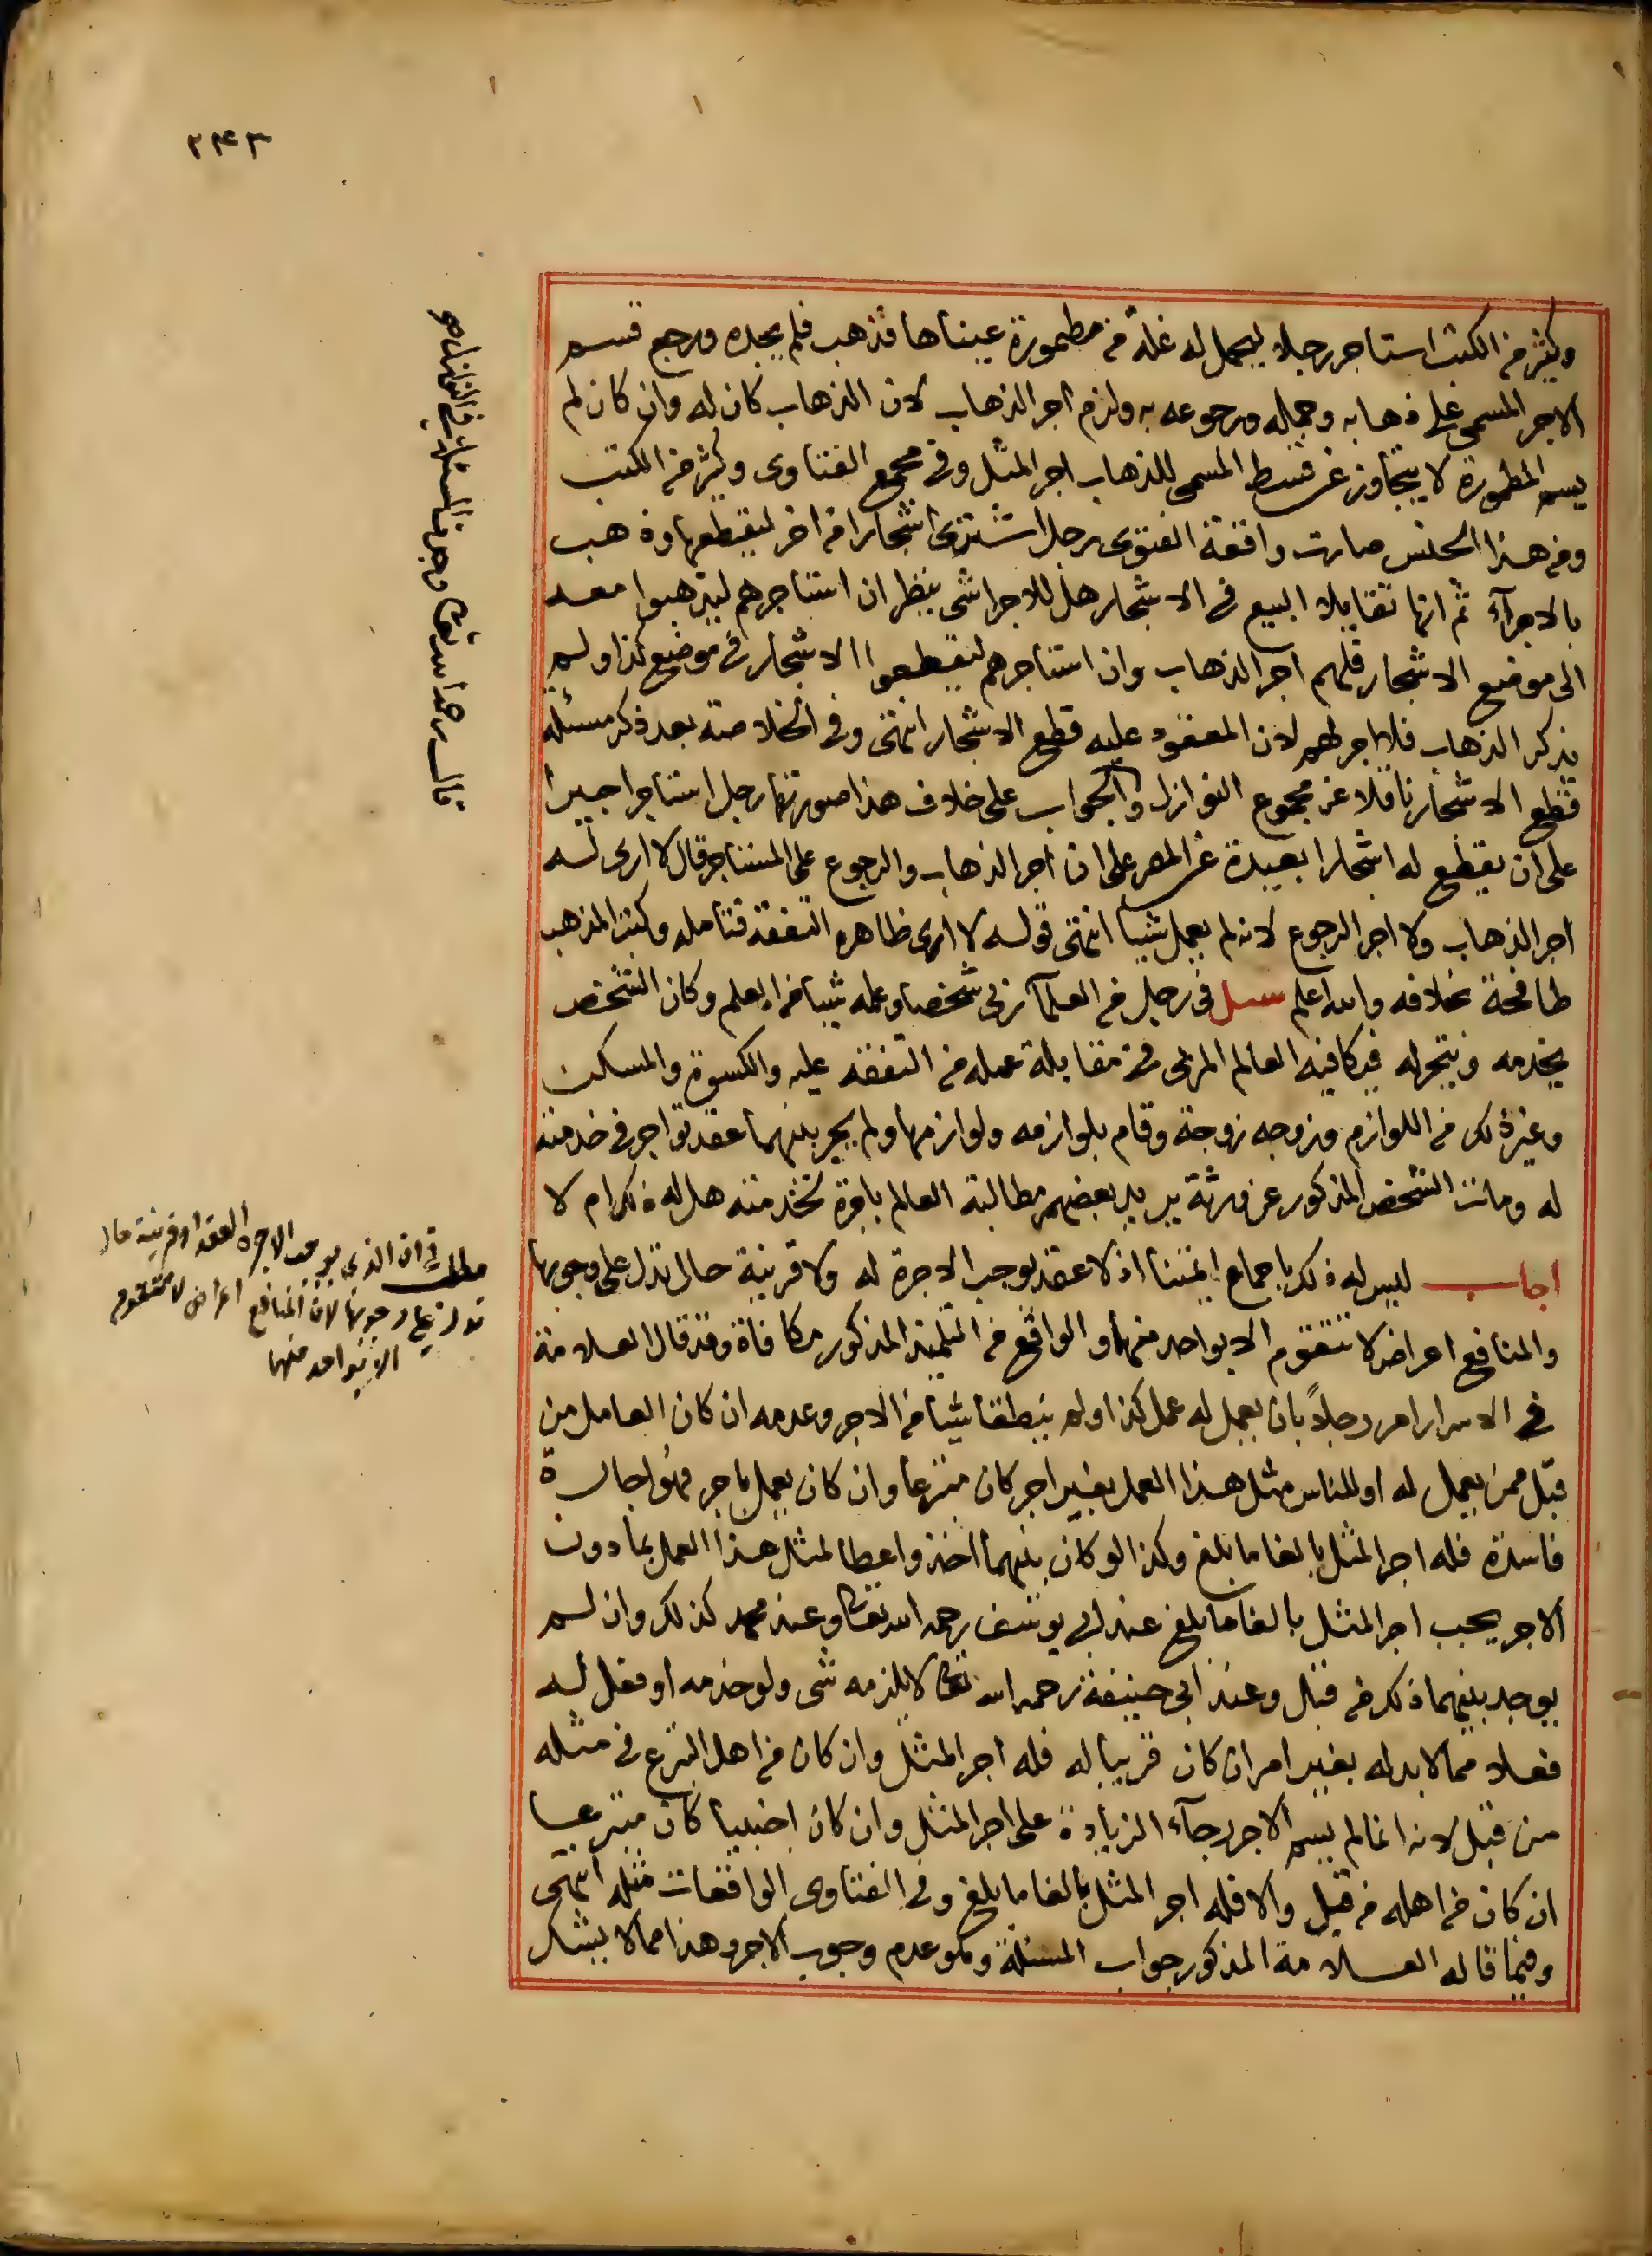 ٢٤٣
وكثير من الكتب استاجر رجلا ليحمل له غلة من مطمورة عيناها فذهب فلم يجده ورجع قسم
الاجر المسمى على ذهابه وحمله ورجوعه به ولزم اجر الذهاب لان الذهاب كان له وان كان لم
يسم المطمورة لا يتجاوز عن قسط المسمى للذهاب اجر المثل وفي مجمع الفتاوى وكثير من الكتب
ومن هذا الجنس صارت واقعة الفتوى رجل اشترى اشجارا من اخر ليقطعها وذهب
بالاجرآء ثم انهما تقايلا البيع في الاشجار هل للاجرا شي ينظر ان استاجرهم ليذهبوا معه
الى موضع الاشجار فلهم اجر الذهاب وان استاجرهم ليقطعوا الاشجار في موضع كذا ولم
يذكر الذهاب فلا اجر لهم لان المعقود عليه قطع الاشجار انتهى وفي الخلاصة بعد ذكر مسئلة
قطع الاشجار ناقلا عن مجموع النوازل والجواب على خلاف هذا صورتها رجل استاجر اجيرا
على ان يقطع له اشجارا بعيدة عن المصر على ان اجر الذهاب والرجوع على المستاجر قال لا ارى له
اجر الذهاب ولا اجر الرجوع لانه لم يعمل شيا انتهى قوله لا ارى ظاهره التفقه فتامله وكتب المذهب
طافحة بخلافه والله اعلم سئل في رجل من العلمآ ربى شخصا وعلمه شيا من العلم وكان الشخص
يخدمه ويتجر له فيكافيه العالم المربى في مقابلة عمله من النفقه عليه والكسوة والمسكن
وغير ذلك من اللوازم وزوجه زوجة وقام بلوازمه ولوازمها ولم يجر بينهما عقد تواجر في خدمته
له ومات الشخص المذكور عن ورثة يريد بعضهم مطالبة العالم باجرة خدمته هل له ذلك ام لا
اجاب ليس له ذلك باجماع ايمتنا اذ لا عقد يوجب الاجرة له ولا قرينة حال تدل على وجوبها
والمنافع اعراض لا تتقوم الا بواحد منهما والواقع من التلميذ المذكور مكافاة وقد قال العلامة
في الاسرار امر رجلاً بان يعمل له عمل كذا ولم ينطقا بشيا من الاجر وعدمه ان كان العامل من
قبل ممن يعمل له او للناس مثل هذا العمل بغير اجر كان متبرعا وان كان يعمل باجر فهو اجارة
فاسدة فله اجر المثل بالغا ما بلغ وكذا لو كان بينهما اخذ واعطا لمثل هذا العمل بما دون
الاجر يجب اجر المثل بالغا ما بلغ عند ابي يوسف رحمه الله تعالى وعند محمد كذلك وان لم
يوجد بينهما ذلك من قبل وعند ابي حنيفة رحمه الله تعالى لا يلزمه شي ولو خدمه او فعل له
فعلا مما لا بد له بغير امر ان كان قريبا له فله اجر المثل وان كان من اهل التبرع في مثله
من قبل لانه انما لم يسم الاجر رجآء الزيادة على اجر المثل وان كان اجنبيا كان متبرعا
ان كان من اهله من قبل والا فله اجر المثل بالغا ما بلغ وفي الفتاوى الواقعات مثله انتهى
وفيما قاله العلامة المذكور جواب المسئلة وهو عدم وجوب الاجر وهذا مما لا يشك
مطلب في ان الذي يوجب الاجرة العقد او قرينة حال
تدل على وجوبها لان المنافع اعراض لا تتقوم
الا بواحد منهما